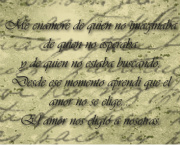 Me enamore de quien no imaginaba
de quien no esperaba
y de quien no estaba buscando.
Desde ese momento aprendi que el
amor no se elige.
El amor nos eligio a nosotras.